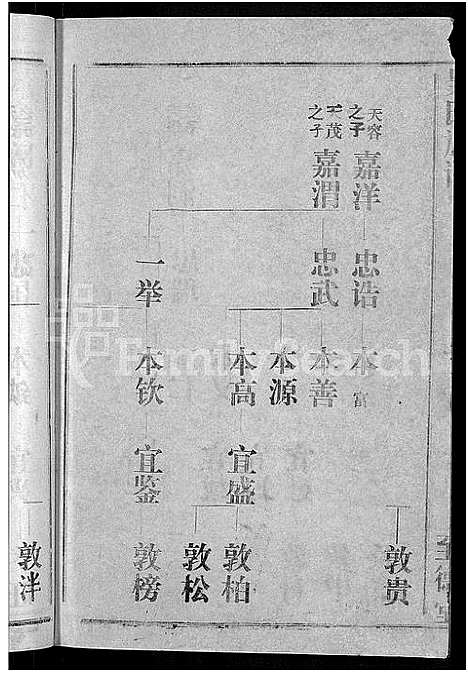 天容
之子
嘉洋
天茂
之子
嘉渭
忠诰
忠武
一举
本富
本善
本源
本高
本钦
宜盛
宜鉴
敦贵
敦柏
敦松
敦榜
敦泮
FamilySearch